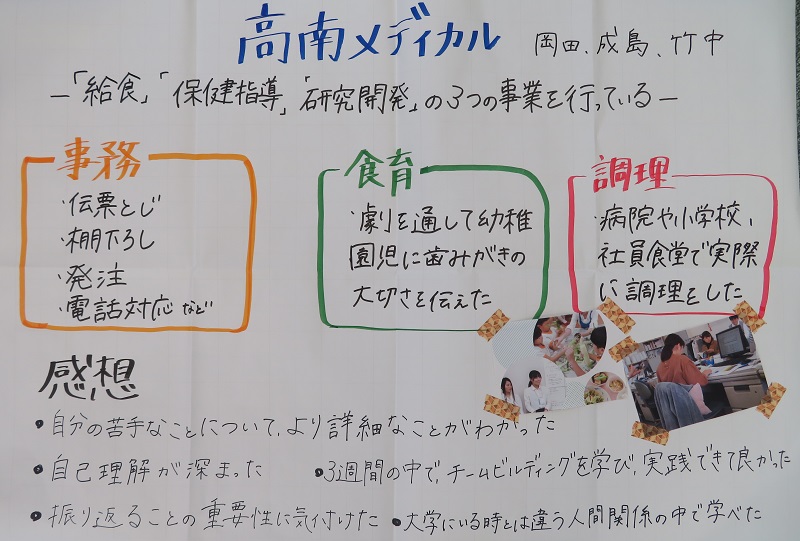 高南メディカル 岡田、成島、竹中
―「給食」「保健指導」「研究開発」の3つの事業を行っている―
事務
・伝票とじ
・棚下ろし
・発注
・電話対応など
食育
・劇を通して幼稚
園児に歯みがきの
大切さを伝えた
調理
・病院や小学校、
社員食堂で実際
に調理をした
感想
・自分の苦手なことについて、より詳細なことがわかった
・自己理解が深まった
・3週間の中で、チームビルディングを学び、実践できて良かった
・振り返ることの重要性に気付けた
・大学にいる時とは違う人間関係の中で学べた